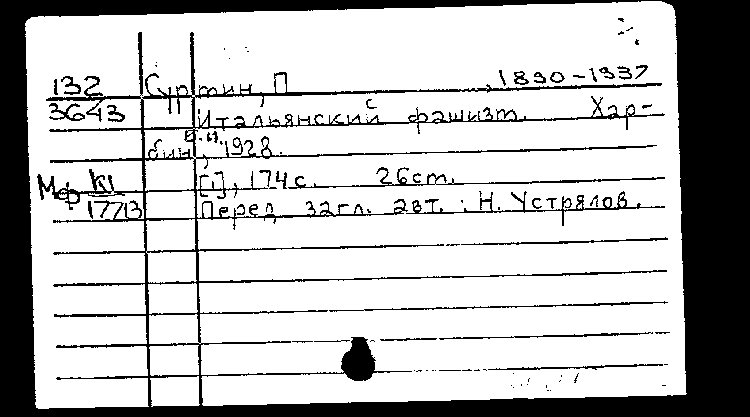 132 Суртин, П , 1890-1937
3643 Итальянский фашизм. Хар-
бин, б.и., 1928.
Мф К1 [1], 174 с. 26 cm.
17713 Перед загл. авт. : Н. Устрялов.